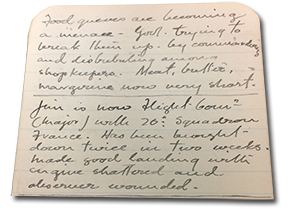 Food queues are becoming
a menace - Govt. trying to
break them up - by commandeering
and distributing among
shopkeepers. Meat, butter,
margarine now very short.
Jim is now Flight Comr
(Major) with 70th Squadron
France. Has been brought
down twice in two weeks.
Made good landing with
engine shattered and
observer wounded.